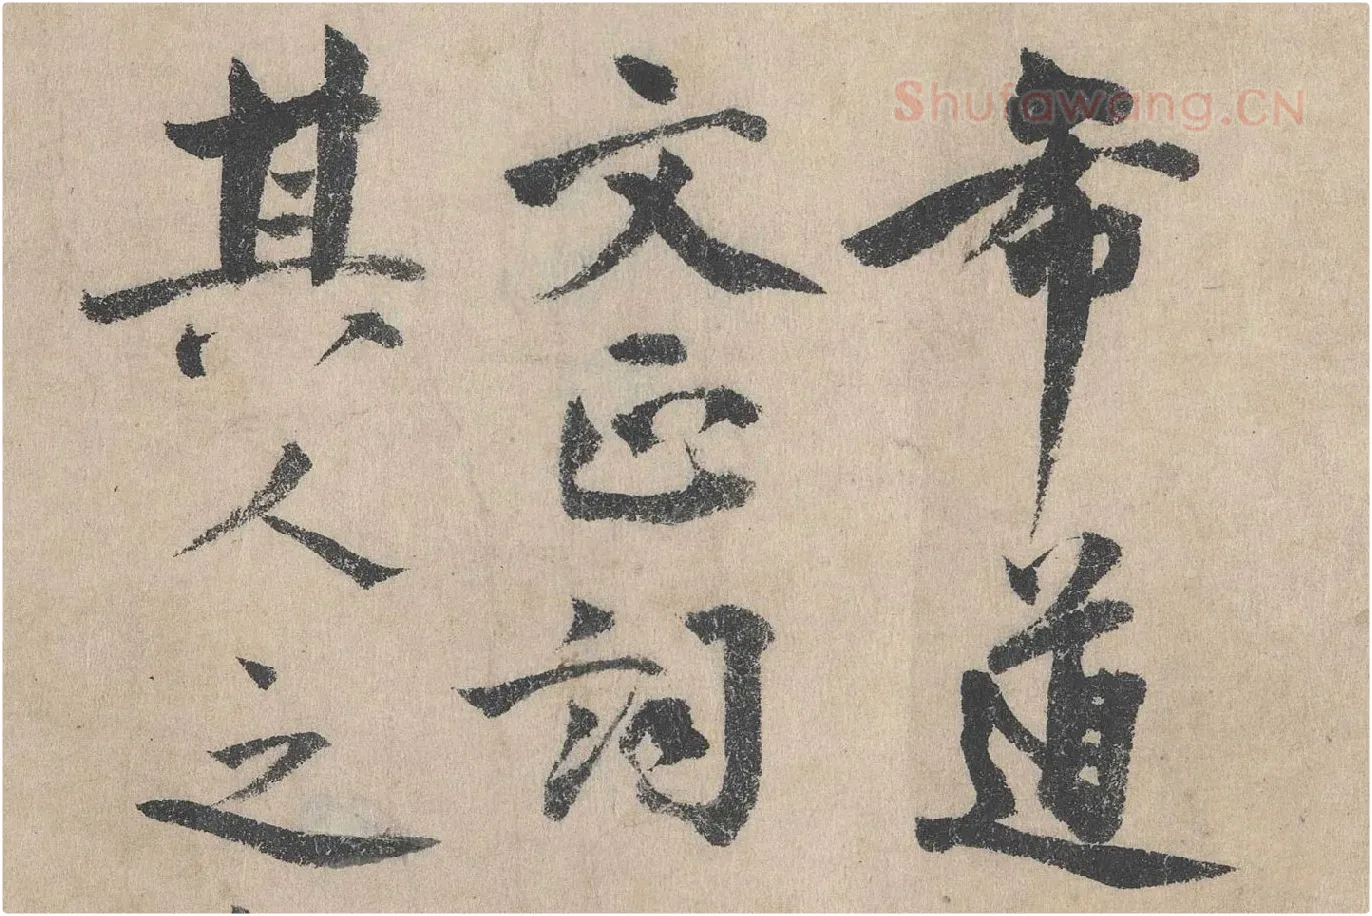 希道
文正词
其人之
Shufawang.CN